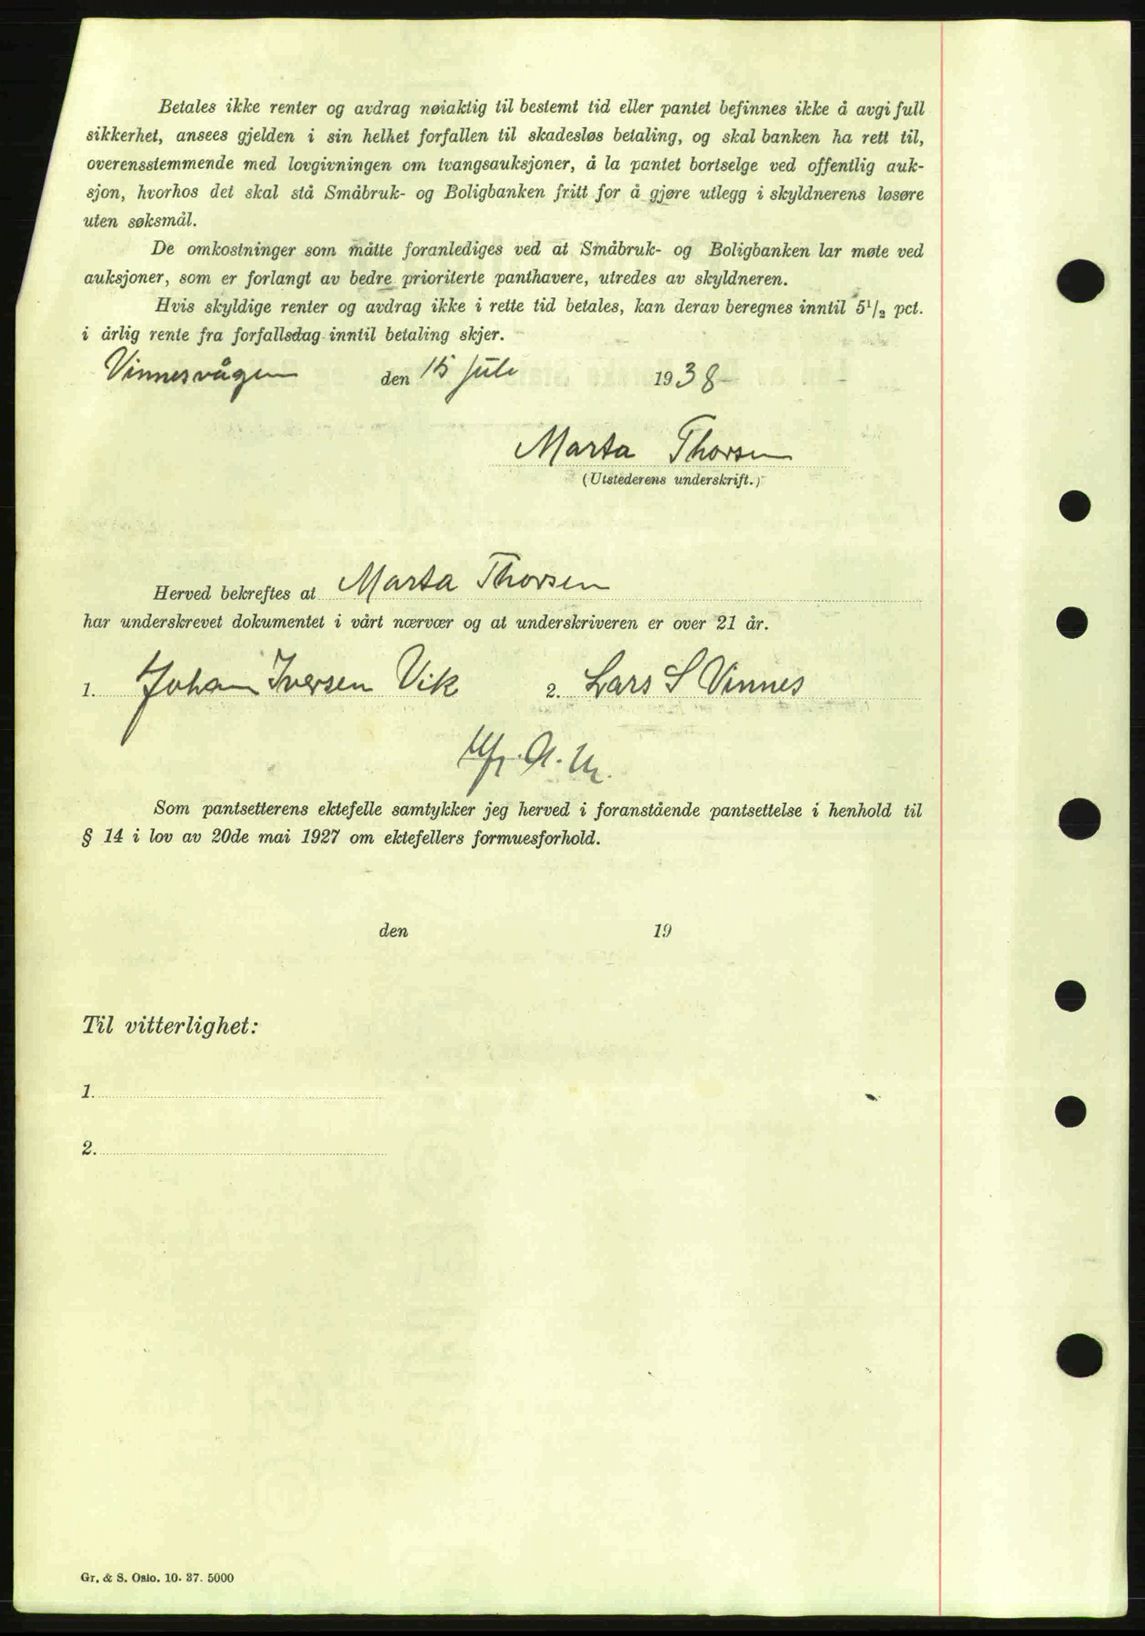 Betales ikke renter og avdrag nøiaktig til bestemt tid eller pantet befinnes ikke å avgi full
sikkerhet, ansees gjelden i sin helhet forfallen til skadesløs betaling, og skal banken ha rett til,
overensstemmende med lovgivningen om tvangsauksjoner, å la pantet bortselge ved offentlig auk-
sjon, hvorhos det skal stå Småbruk- og Boligbanken fritt for å gjøre utlegg i skyldnerens løsøre
uten søksmål.
De omkostninger som måtte foranlediges ved at Småbruk- og Boligbanken lar møte ved
auksjoner, som er forlangt av bedre prioriterte panthavere, utredes av skyldneren.
Hvis skyldige renter og avdrag ikke i rette tid betales, kan derav beregnes inntil 5 1/2 pct.
i årlig rente fra forfallsdag inntil betaling skjer.
Vinnesvågen den 15 juli 1938
Marta Thorsen
(Utstederens underskrift.)
Herved bekreftes at Marta Thorsen
har underskrevet dokumentet i vårt nærvær og at underskriveren er over 21 år.
1. Johan Iversen Vik 2. Lars S Vinnes
Som pantsetterens ektefelle samtykker jeg herved i foranstående pantsettelse i henhold til
§ 14 i lov av 20de mai 1927 om ektefellers formuesforhold.
den 19
Til vitterlighet:
1.
2.
Gr. & S. Oslo. 10. 37. 5000